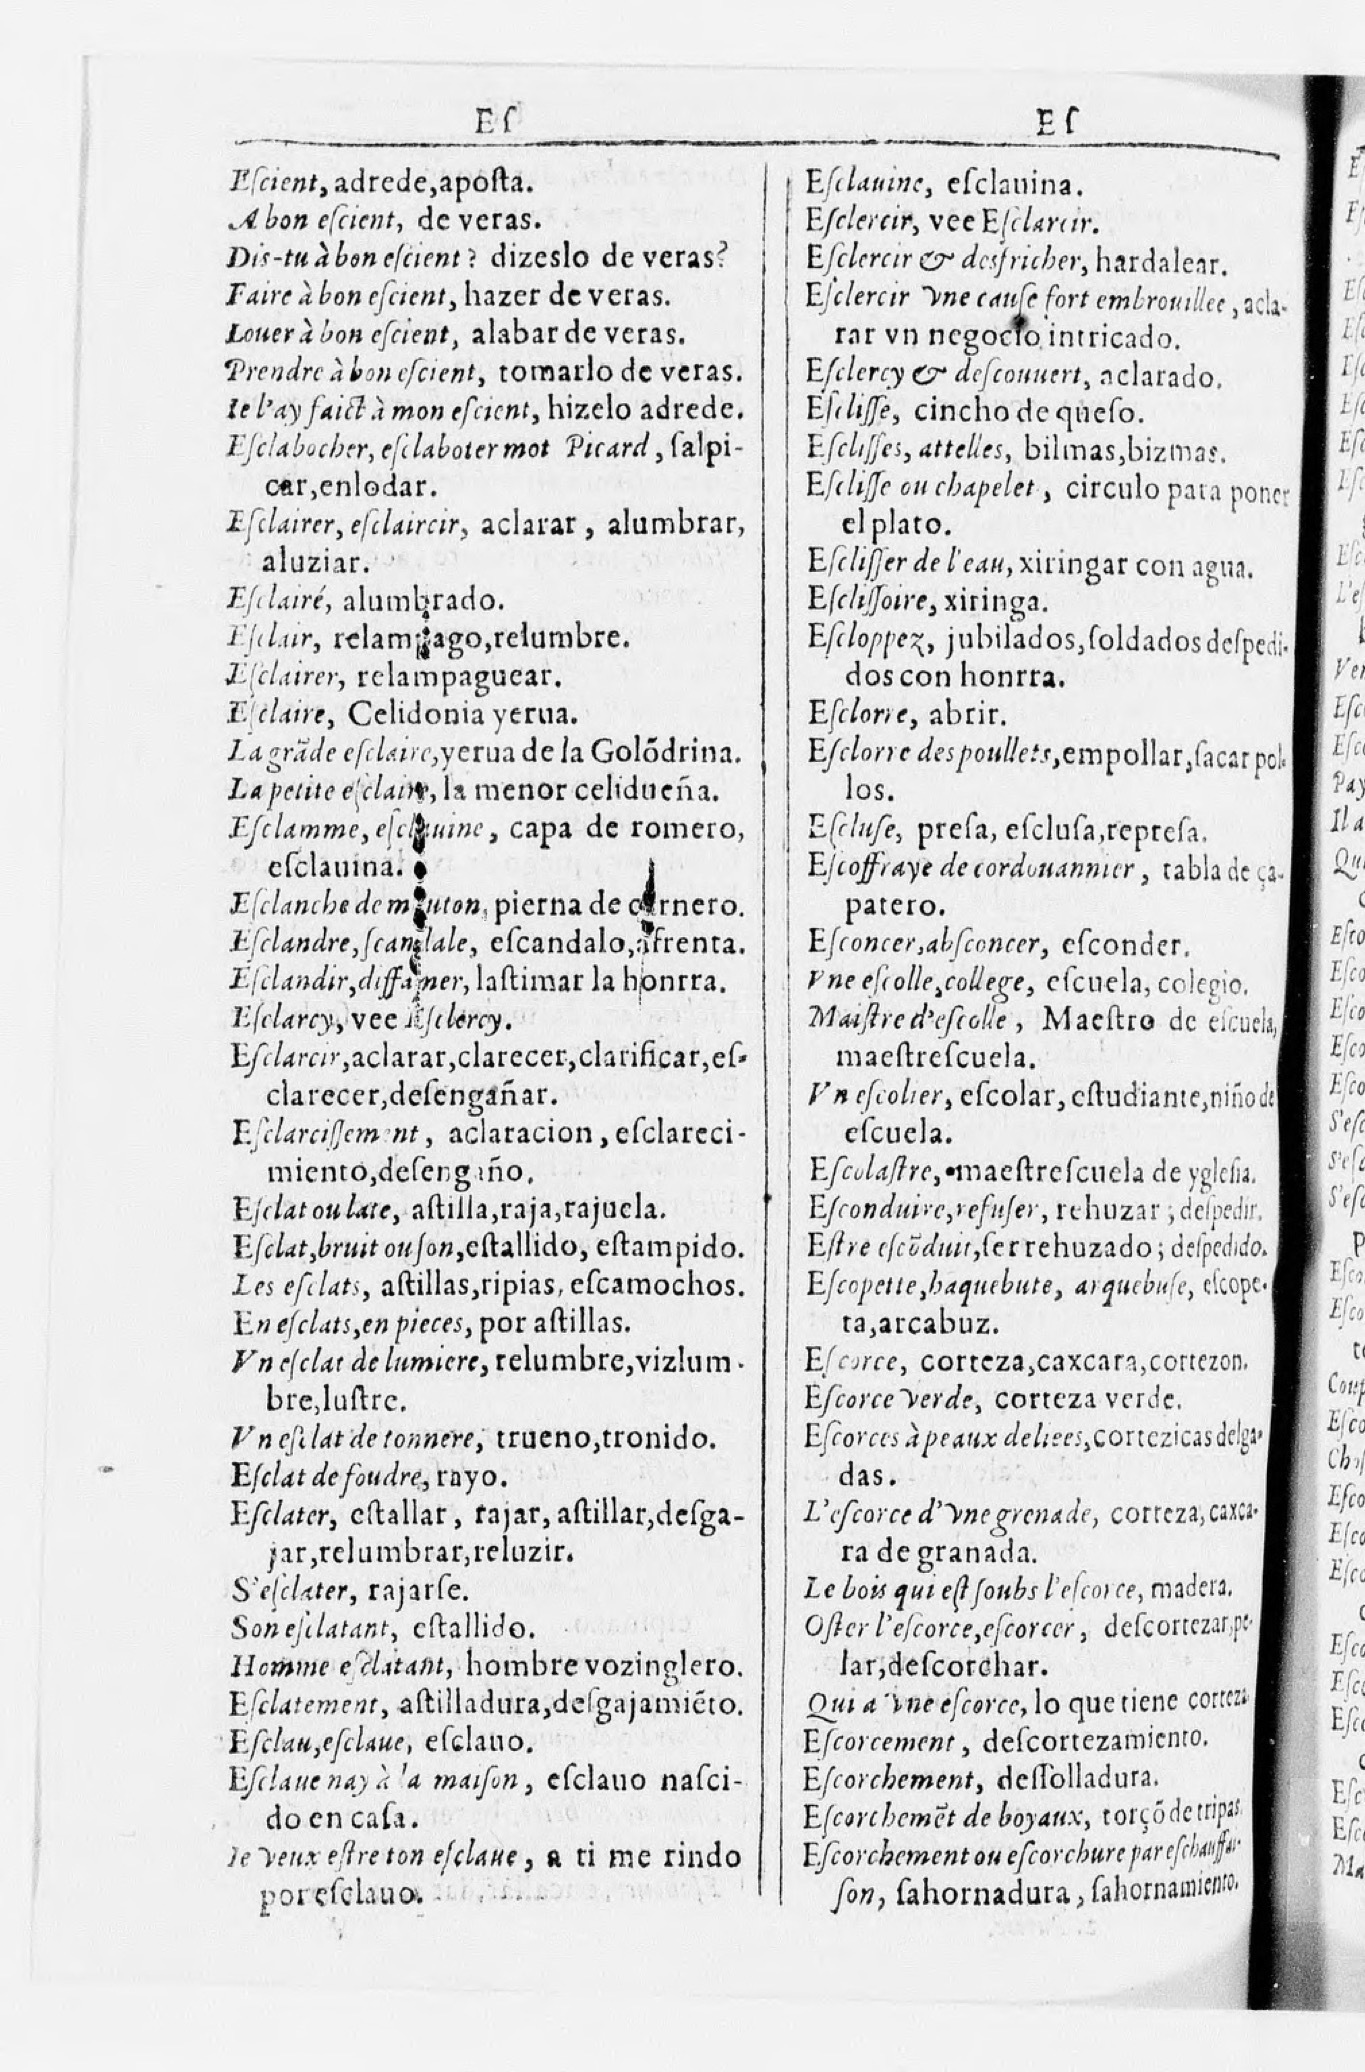 Eſ
Eſcient, adrede,apoſta.
A bon eſcient, de veras.
Dis-tu à bon eſcient? dizeslo de veras?
Faire à bon eſcient, hazer de veras.
Louer à bon eſcient, alabar de veras.
Prendre à bon eſcient, tomarlo de veras.
Ie l'ay faict à mon eſcient, hizelo adrede.
Eſclabocher, eſclaboter mot Picard, ſalpi-
car,enlodar.
Eſclairer, eſclaircir, aclarar, alumbrar,
aluziar.
Eſclairé, alumbrado.
Eſclair, relampago,relumbre.
Eſclairer, relampaguear.
Eſclaire, Celidonia yerua.
La grãde eſclaire,yerua de la Golõdrina.
La petite eſclaire, la menor celidueña.
Eſclamme, eſclauine, capa de romero,
eſclauina.
Eſclanche de mouton, pierna de carnero.
Eſclandre, ſcandale, eſcandalo,afrenta.
Eſclandir,diffamer, laſtimar la honrra.
Eſclarcy, vee Eſclercy.
Eſclarcir,aclarar,clarecer,clarificar,eſ-
clarecer,deſengañar.
Eſclarciſſement, aclaracion, eſclareci-
miento,deſengaño.
Eſclat ou late, aſtilla,raja,rajuela.
Eſclat,bruit ou ſon,eſtallido, eſtampido.
Les eſclats, aſtillas,ripias, eſcamochos.
En eſclats,en pieces, por aſtillas.
Vn eſclat de lumiere, relumbre,vizlum-
bre,luſtre.
Vn eſclat de tonnere, trueno,tronido.
Eſclat de foudre, rayo.
Eſclater, eſtallar, rajar, aſtillar,deſga-
jar,relumbrar,reluzir.
S'eſclater, rajarſe.
Son eſclatant, eſtallido.
Homme eſclatant, hombre vozinglero.
Eſclatement, aſtilladura,deſgajamiẽto.
Eſclau,eſclaue, eſclauo.
Eſclaue nay à la maiſon, eſclauo naſci-
do en caſa.
Ie veux eſtre ton eſclaue, a ti me rindo
por eſclauo.
Eſ
Eſclauine, eſclauina.
Eſclercir, vee Eſclarcir.
Eſclercir & desfricher, hardalear.
Eſclercir vne cauſe fort embrouillee, acla-
rar vn negocio intricado.
Eſclercy & deſcouuert, aclarado.
Eſcliſſe, cincho de queſo.
Eſcliſſes, attelles, bilmas,bizmas.
Eſcliſſe ou chapelet, circulo para poner
el plato.
Eſcliſſer de l'eau, xiringar con agua.
Eſcliſſoire, xiringa.
Eſcloppez, jubilados,ſoldados deſpedi-
dos con honrra.
Eſclorre, abrir.
Eſclorre des poullets,empollar,ſacar pol-
los.
Eſcluſe, preſa, eſcluſa,repreſa.
Eſcoffraye de cordouannier, tabla de ça-
patero.
Eſconcer,abſconcer, eſconder.
Vne eſcolle,college, eſcuela, colegio.
Maiſtre d'eſcolle, Maeſtro de eſcuela,
maeſtreſcuela.
Vn eſcolier, eſcolar, eſtudiante,niño de
eſcuela.
Eſcolaſtre, maeſtreſcuela de ygleſia.
Eſconduire,refuſer, rehuzar; deſpedir.
Eſtre eſcõduit,ſer rehuzado; deſpedido.
Eſcopette,haquebute, arquebuſe, eſcope-
ta,arcabuz.
Eſcorce, corteza,caxcara,cortezon.
Eſcorce verde, corteza verde.
Eſcorces à peaux deliees,cortezicas delga-
das.
L'eſcorce d'vne grenade, corteza, caxca-
ra de granada.
Le bois qui eſt ſoubs l'eſcorce, madera.
Oſter l'eſcorce,eſcorcer, deſcortezar,pe-
lar,deſcorchar.
Qui a vne eſcorce, lo que tiene corteza
Eſcorcement, deſcortezamiento.
Eſcorchement, deſſolladura.
Eſcorchemẽt de boyaux, torçõ de tripas.
Eſcorchement ou eſcorchure par eſchauffai-
ſon, ſahornadura, ſahornamiento.